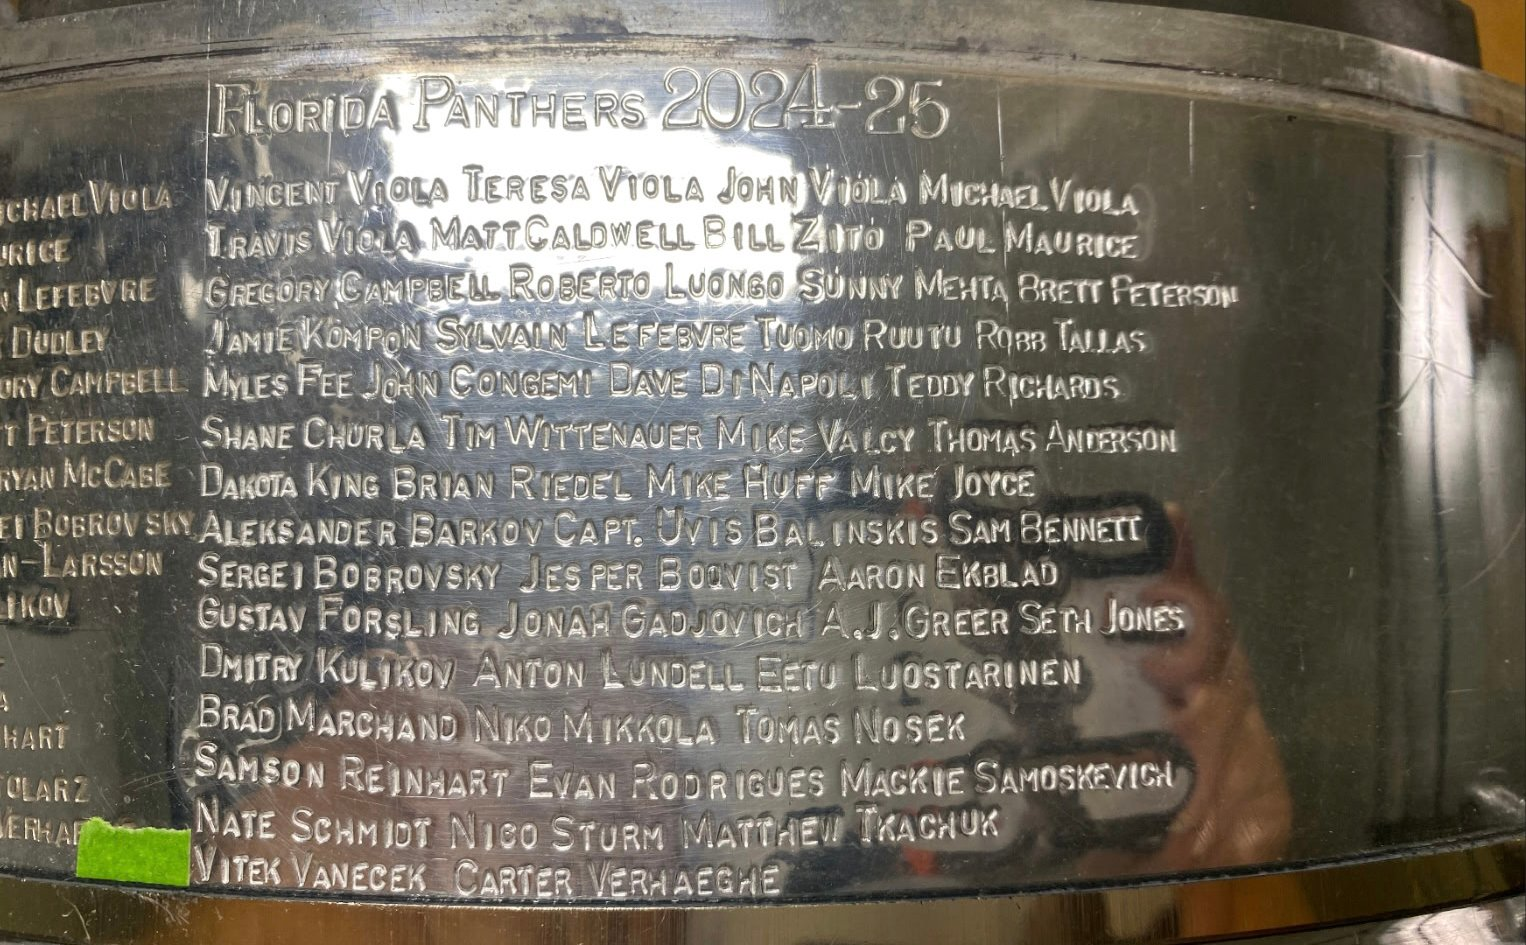 FLORIDA PANTHERS 2024-25
VINCENT VIOLA TERESA VIOLA JOHN VIOLA MICHAEL VIOLA
TRAVIS VIOLA MATT CALDWELL BILL ZITO PAUL MAURICE
GREGORY CAMPBELL ROBERTO LUONGO SUNNY MEHTA BRETT PETERSON
JAMIE KOMPON SYLVAIN LEFEBVRE TUOMO RUUTU ROBB TALLAS
MYLES FEE JOHN CONGEMI DAVE DINAPOLI TEDDY RICHARDS
SHANE CHURLA TIM WITTENAUER MIKE VALCY THOMAS ANDERSON
DAKOTA KING BRIAN RIEDEL MIKE HUFF MIKE JOYCE
ALEKSANDER BARKOV CAPT. UVIS BALINSKIS SAM BENNETT
SERGEI BOBROVSKY JESPER BOQVIST AARON EKBLAD
GUSTAV FORSLING JONAH GADJOVICH A.J. GREER SETH JONES
DMITRY KULIKOV ANTON LUNDELL EETU LUOSTARINEN
BRAD MARCHAND NIKO MIKKOLA TOMAS NOSEK
SAMSON REINHART EVAN RODRIGUES MACKIE SAMOSKEVICH
NATE SCHMIDT NICO STURM MATTHEW TKACHUK
VITEK VANECEK CARTER VERHAEGHE
VIOLA
LEFEBVRE
DUDLEY
CAMPBELL
PETERSON
MCCABE
BOBROVSKY
-LARSSON